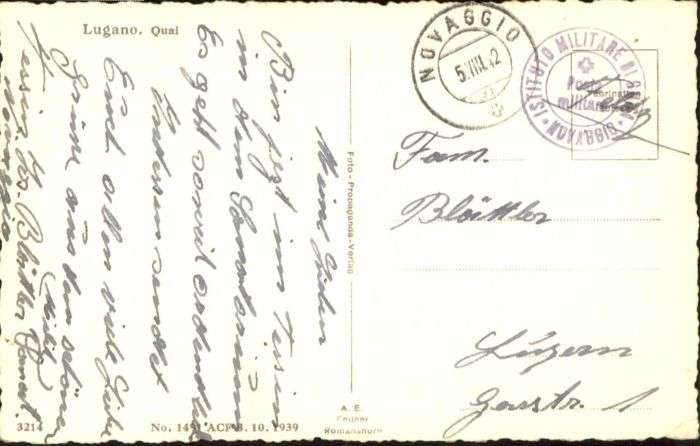 Lugano. Quai
Meine Lieben
Bin jetzt im Tessin
in dem Sanatorium
Es geht soweit ordentlich
Indessen sendet
Euch allen viele liebe
Grüsse aus dem schönen
Tessin Blättler
Novaggio
3214
No. 1491 ACF 3. 10. 1939
Foto-Propaganda-Verlag
A. E.
Romanshorn
NOVAGGIO
5.VIII.42
ISTITUTO MILITARE DI CURA
NOVAGGIO
Posta
militare
Fam.
Blättler
Luzern